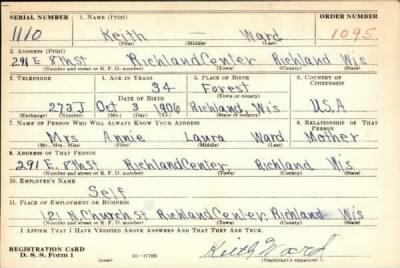 SERIAL NUMBER 1. NAME (Print) ORDER NUMBER
1110 Keith — Ward 1095
(First) (Middle) (Last)
2. ADDRESS (Print)
291 E. 8th St Richland Center Richland Wis
(Number and street or R. F. D. number) (Town) (County) (State)
3. TELEPHONE 4. AGE IN YEARS 5. PLACE OF BIRTH 6. COUNTRY OF CITIZENSHIP
34 Forest
DATE OF BIRTH (Town or county)
273J Oct 3 1906 Richland, Wis U.S.A
(Exchange) (Number) (Mo.) (Day) (Yr.) (State or country)
7. NAME OF PERSON WHO WILL ALWAYS KNOW YOUR ADDRESS 8. RELATIONSHIP OF THAT PERSON
Mrs Annie Laura Ward Mother
(Mr., Mrs., Miss) (First) (Middle) (Last)
9. ADDRESS OF THAT PERSON
291 E. 8th St Richland Center Richland Wis
(Number and street or R. F. D. number) (Town) (County) (State)
10. EMPLOYER'S NAME
Self
11. PLACE OF EMPLOYMENT OR BUSINESS
121 N. Church St Richland Center Richland Wis
(Number and street or R. F. D. number) (Town) (County) (State)
I AFFIRM THAT I HAVE VERIFIED ABOVE ANSWERS AND THAT THEY ARE TRUE.
REGISTRATION CARD
D. S. S. Form 1 (over) Keith Ward
(Registrant's signature)